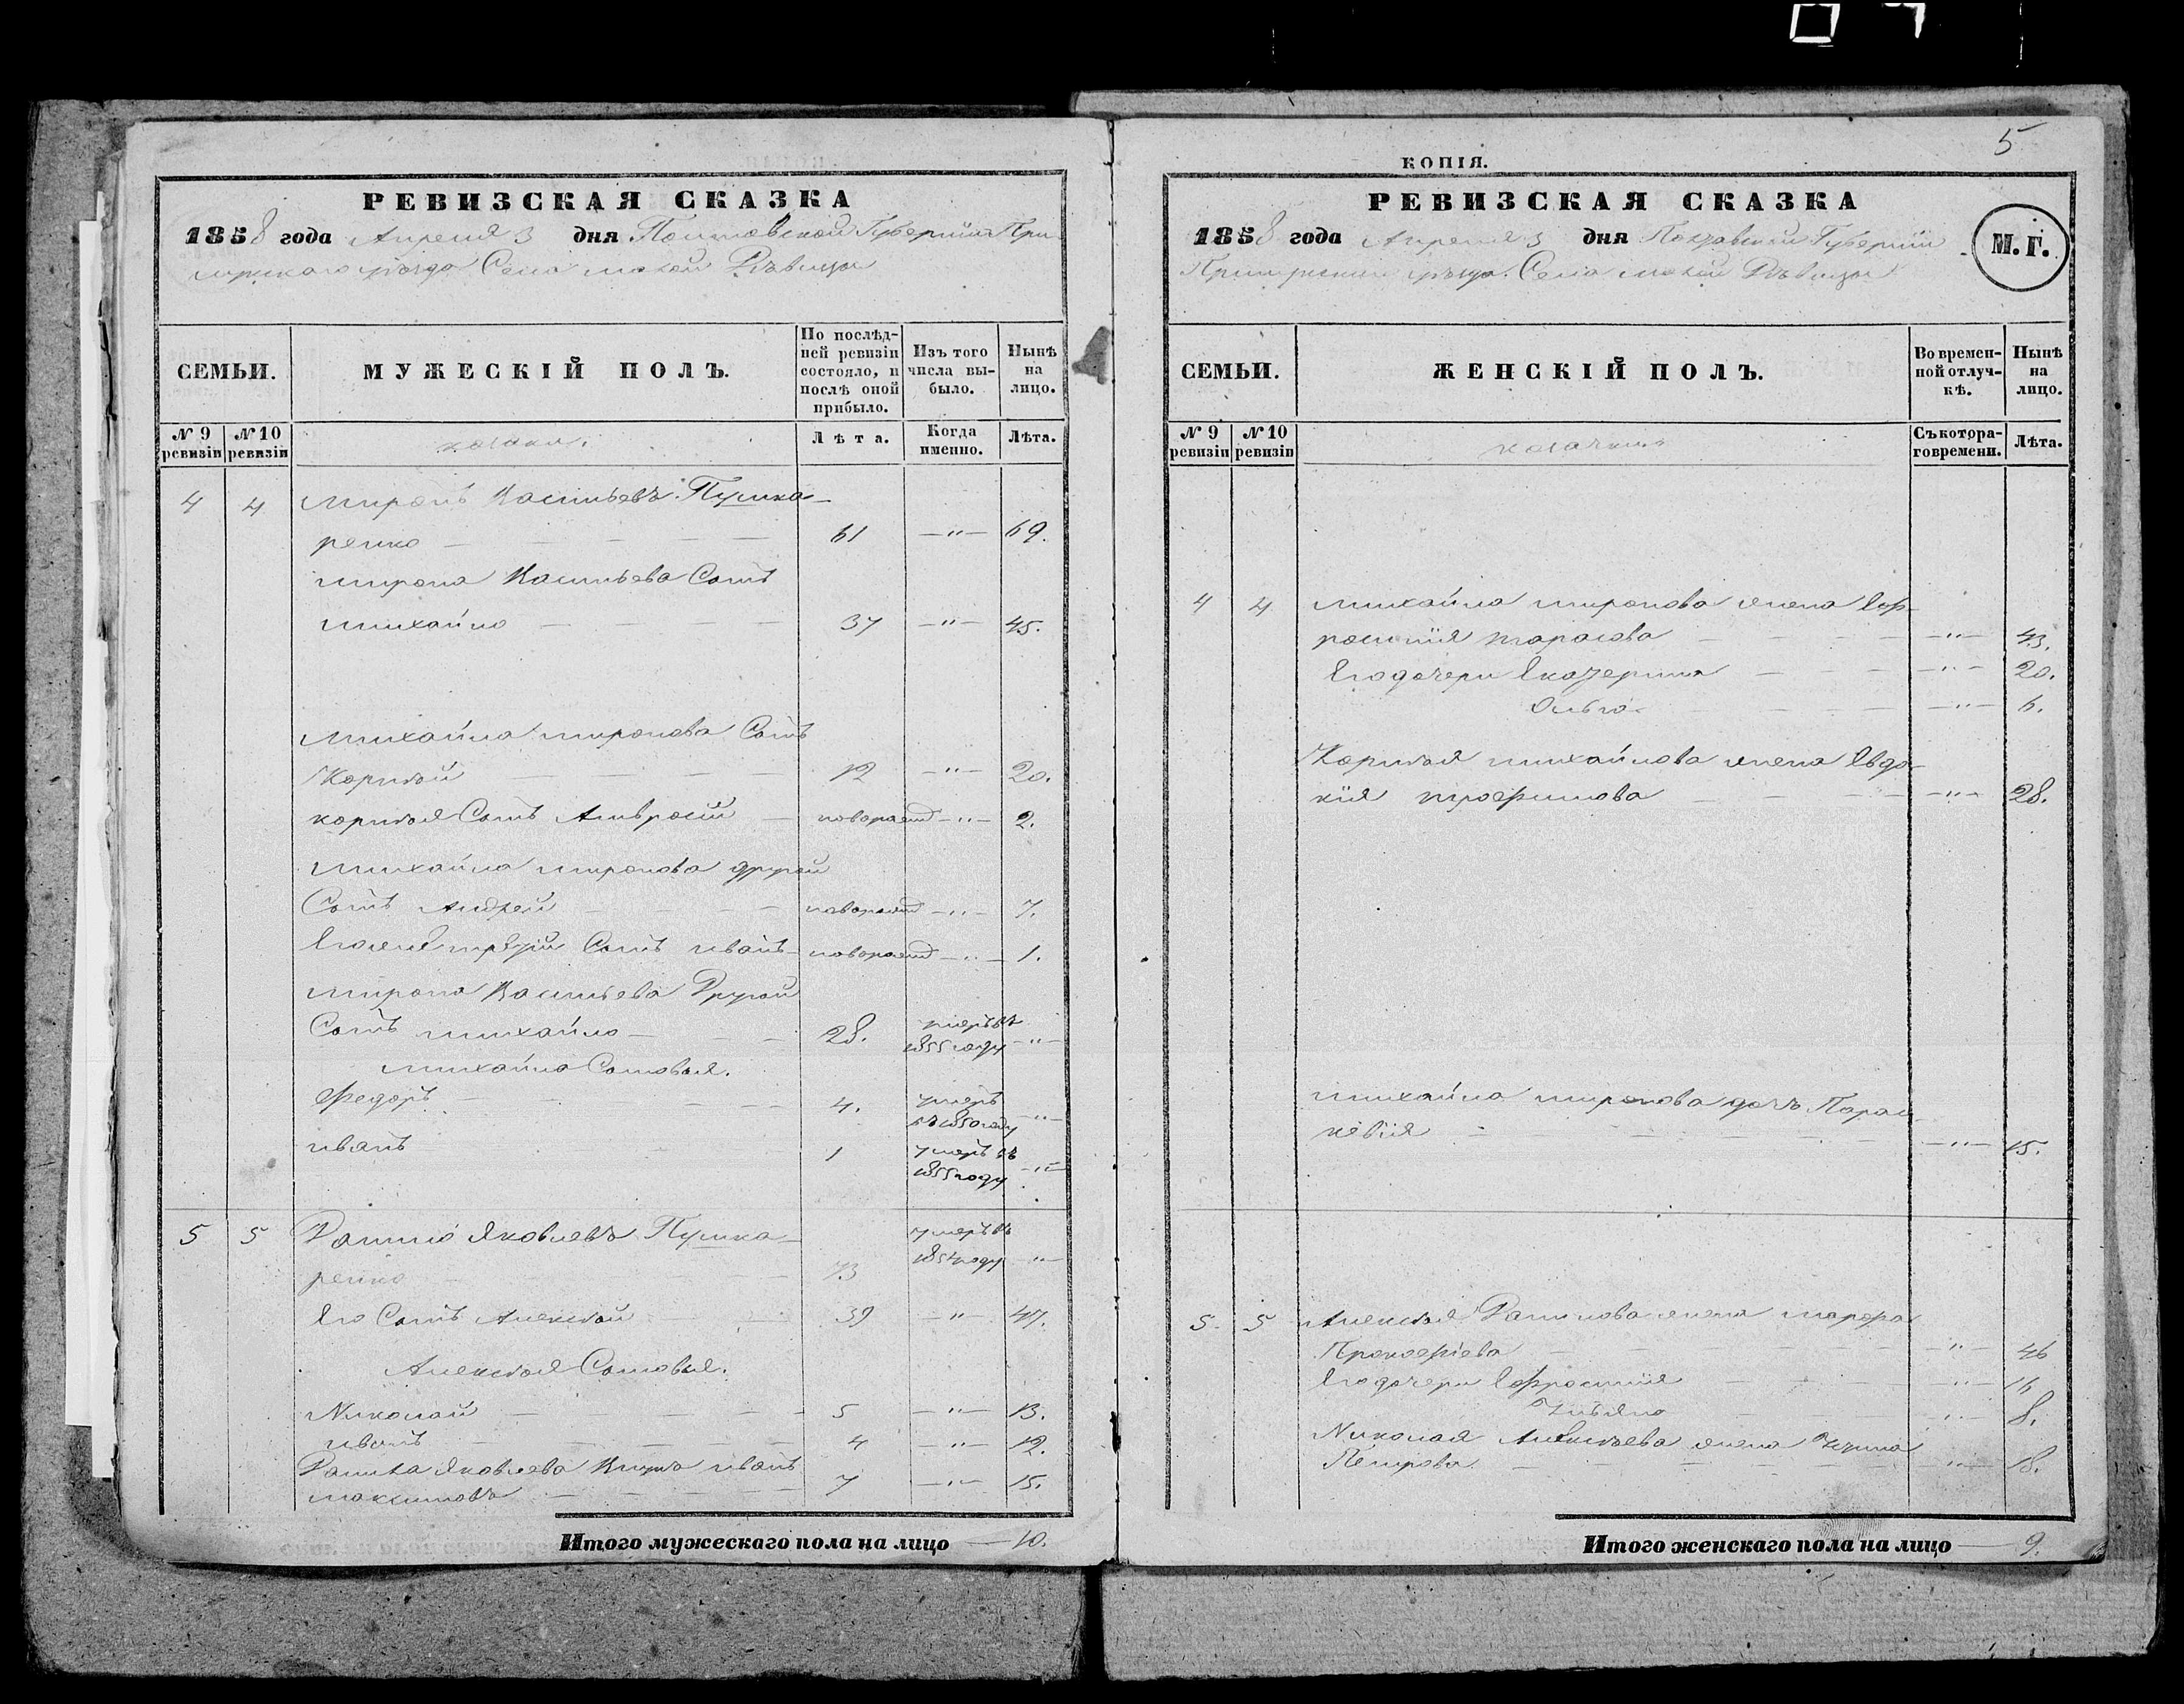 5
РЕВИЗСКАЯ СКАЗКА
1858 года Апреля 3 дня Полтавской Губернии При
лукскаго уезда Села малой Дѣвицы
СЕМЬИ.
МУЖЕСКІЙ ПОЛЪ.
По послѣд-
ней ревизіи
состояло, и
послѣ оной
прибыло.
Изъ того
числа вы-
было.
Нынѣ
на
лицо.
№ 9
ревизіи
№ 10
ревизіи
козаки.
Лѣта.
Когда
именно.
Лѣта.
4 4 Миронъ Васильевъ Пушка-
ренко 61 —"— 69.
Мирона Васильева Сынъ
Михайло 37 —"— 45.
Михайла Миронова Сынъ
Корнѣй 12 —"— 20.
Корнѣя Сынъ Амвросій новорожд —"— 2.
Михайла Миронова другой
Сынъ Андрей новорожд —"— 7.
Его же третій Сынъ Иванъ новорожд —"— 1.
Мирона Васильева Другой
Сынъ Михайло 28. умеръ въ
1855 году —"—
Михайла Сыновья.
Федоръ 4. умеръ
въ 1850 году —"—
Иванъ 1 умеръ въ
1855 году —"—
5 5 Данило Яковлевъ Пушка- умеръ въ
ренко 73 1854 году —"—
Его Сынъ Алексѣй 39 —"— 47.
Алексѣя Сыновья.
Николай 5 —"— 13.
Иванъ 4 —"— 12.
Данила Яковлева Внукъ Иванъ
Максимовъ 7 —"— 15.
Итого мужескаго пола на лицо — 10.
КОПІЯ.
РЕВИЗСКАЯ СКАЗКА
1858 года Апреля 3 дня Полтавской Губернии
Прилукскаго уезда. Села малой Дѣвицы
М.Г.
СЕМЬИ.
ЖЕНСКІЙ ПОЛЪ.
Во времен-
ной отлуч-
кѣ.
Нынѣ
на
лицо.
№ 9
ревизіи
№ 10
ревизіи
козачки
Съ котора-
го времени.
Лѣта.
4 4 Михайла Миронова жена Еф-
росинія Тарасова —"— 43.
Его дочери Екатерина —"— 20.
Ольга —"— 6.
Корнѣя Михайлова жена Евдо-
кія Трофимова —"— 28.
Михайла Миронова дочь Парас-
кевія —"— 15.
5. 5 Алексѣя Данилова жена Марфа
Прокофіева —"— 46
Его дочери Ефросинія —"— 16
Ульяна —"— 8.
Николая Алексѣева жена
Петрова —"— 18.
Итого женскаго пола на лицо — 9.